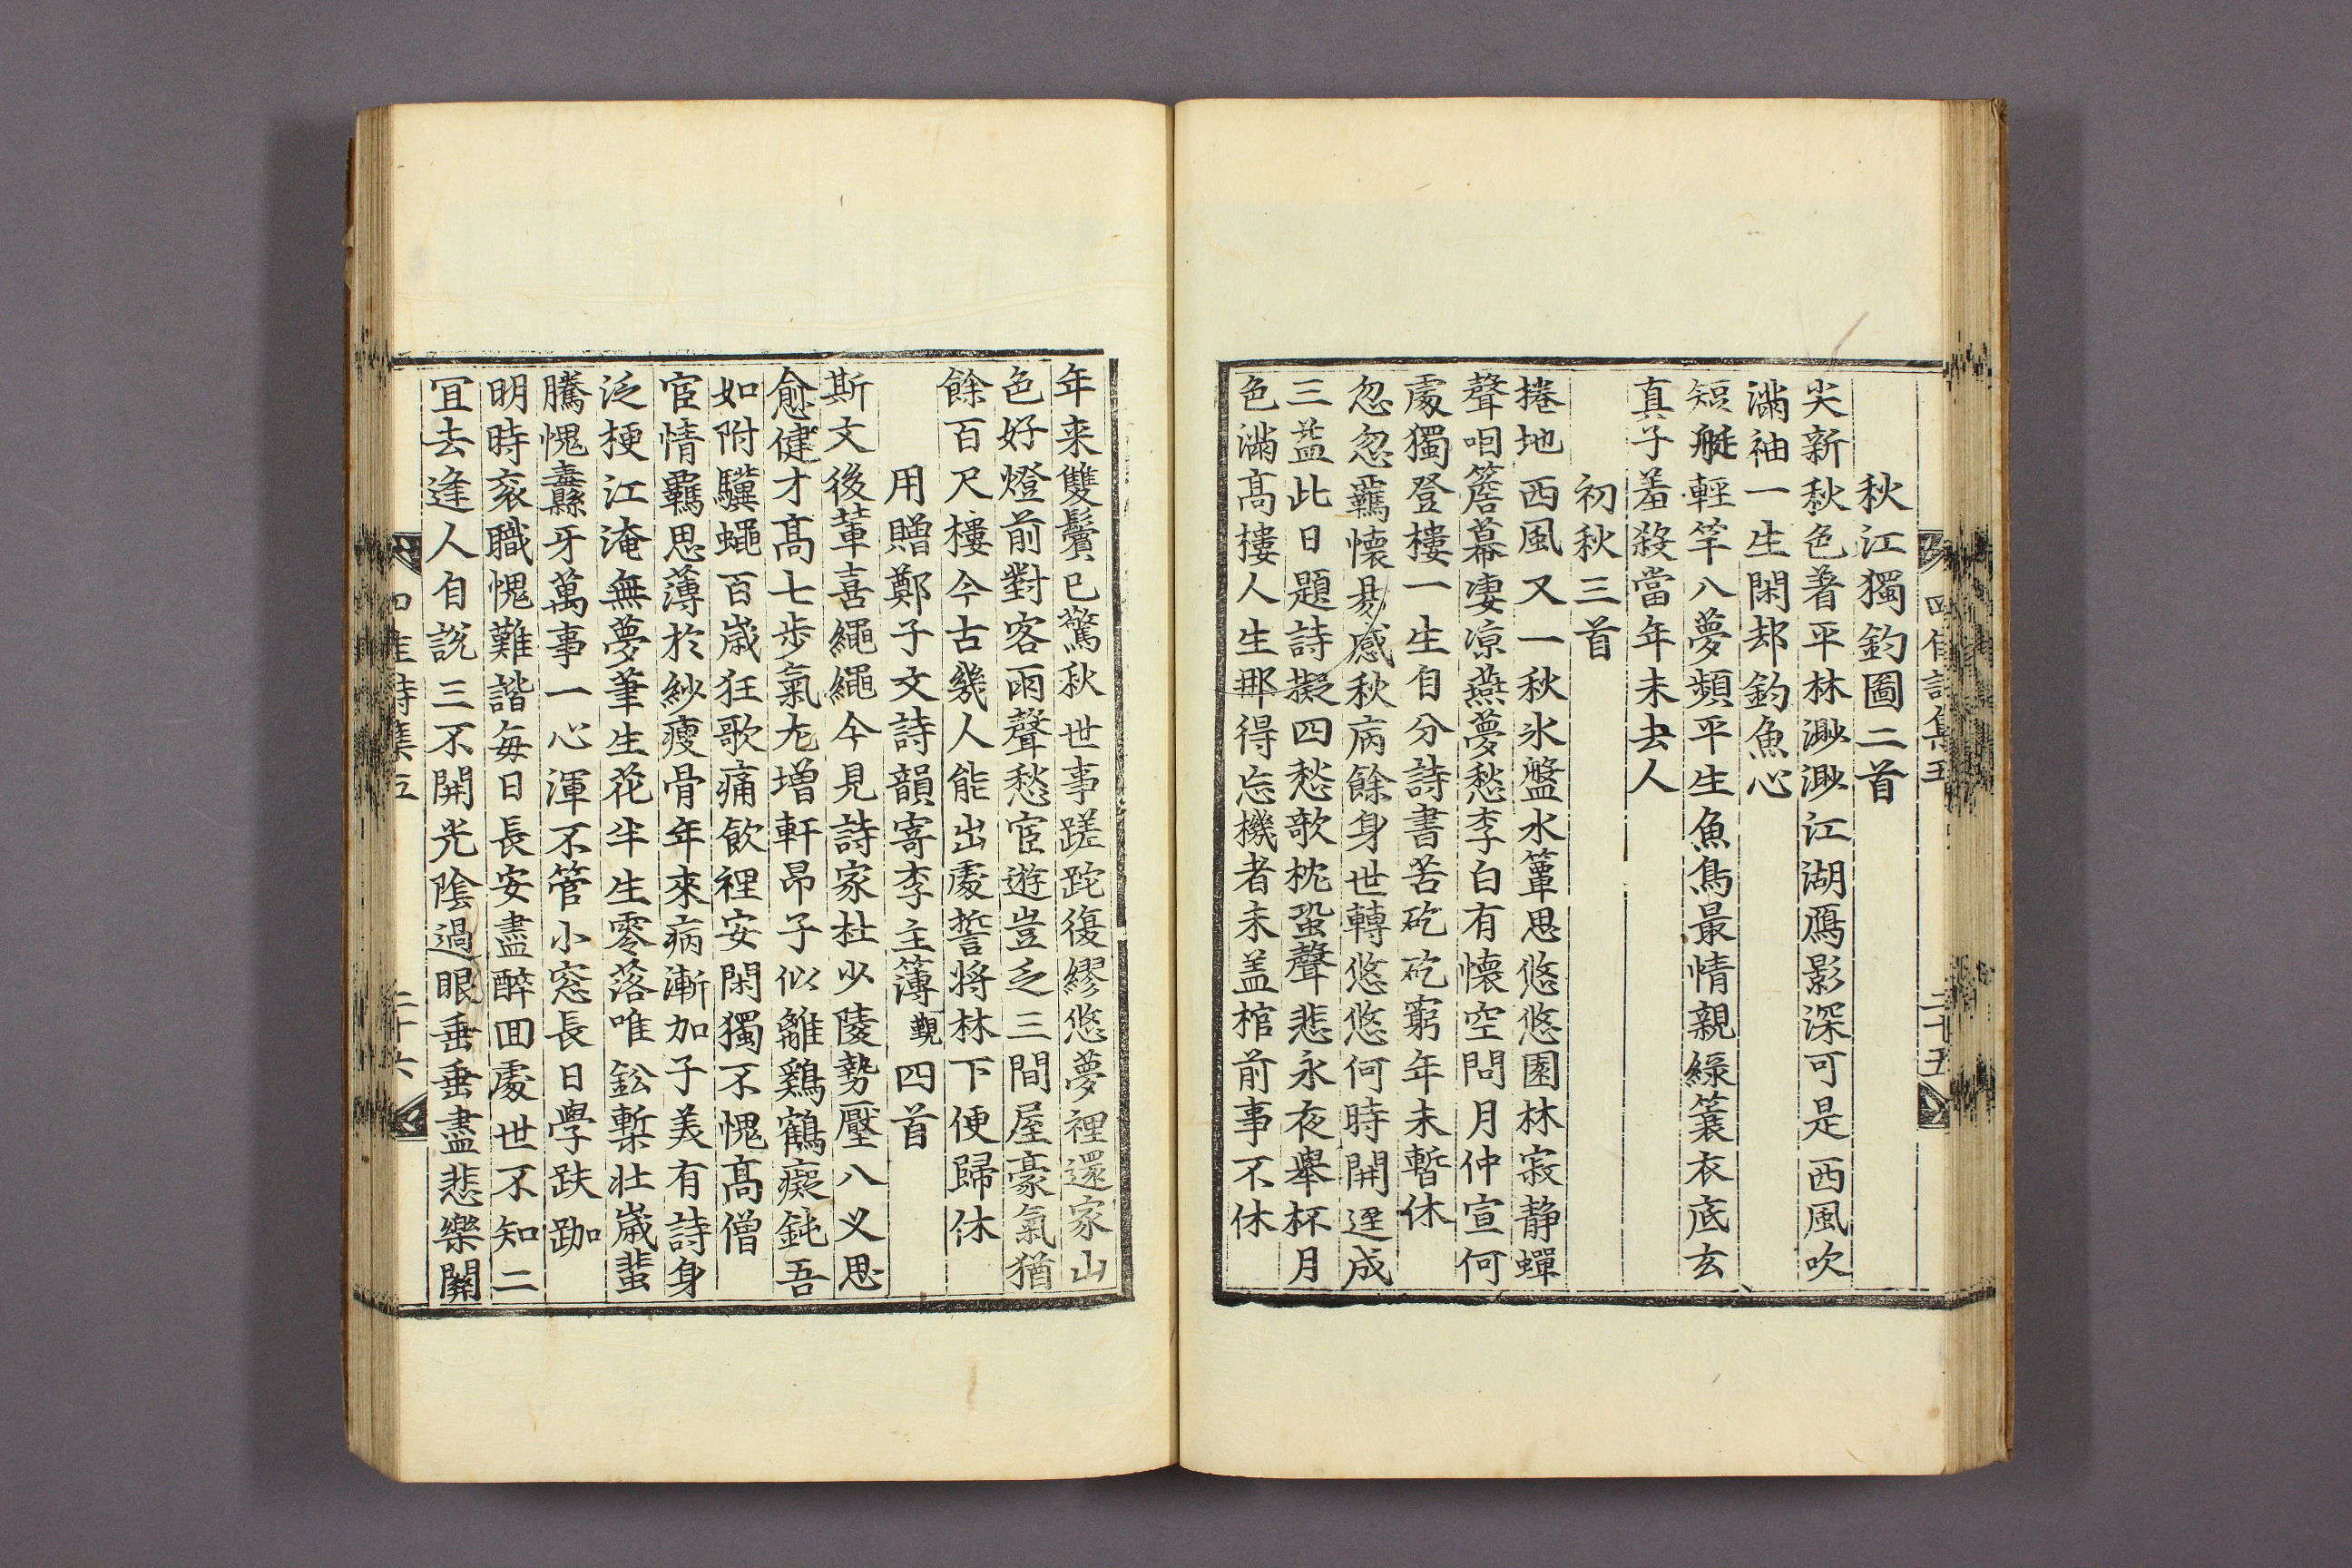 四佳詩集五
二十五
秋江獨釣圖二首
尖新秋色著平林渺渺江湖鴈影深可是西風吹
滿袖一生閑却釣魚心
短艇輕竿入夢頻平生魚鳥最情親綠簑衣底玄
真子羞殺當年未去人
初秋三首
捲地西風又一秋氷盤水簟思悠悠園林寂静蟬
聲咽簷幕凄凉燕夢愁李白有懷空問月仲宣何
處獨登樓一生自分詩書苦矻矻窮年未暫休
忽忽羈懷易感秋病餘身世轉悠悠何時開逕成
三益此日題詩擬四愁歌枕蛩聲悲永夜舉杯月
色滿髙樓人生那得忘機者未盖棺前事不休
年来雙鬢已驚秋世事蹉跎復繆悠夢裡還家山
色好燈前對客雨聲愁宦遊豈乏三間屋豪氣猶
餘百尺樓今古幾人能出處誓将林下便歸休
用贈鄭子文詩韻寄李主簿覲四首
斯文後軰喜繩繩今見詩家杜少陵勢壓八乂思
愈健才髙七步氣尢增軒昂子似離鷄鶴癡鈍吾
如附驥蠅百歳狂歌痛飲裡安閑獨不愧髙僧
宦情羈思薄於紗瘦骨年來病漸加子美有詩身
泛梗江淹無夢筆生花半生零落唯鈆槧壮歳蜚
騰愧纛縣牙萬事一心渾不管小窓長日學趺跏
明時衮職愧難諧每日長安盡醉囬處世不知二
冝去逢人自説三不開光隂過眼垂垂盡悲樂關
四佳詩集五
二十六